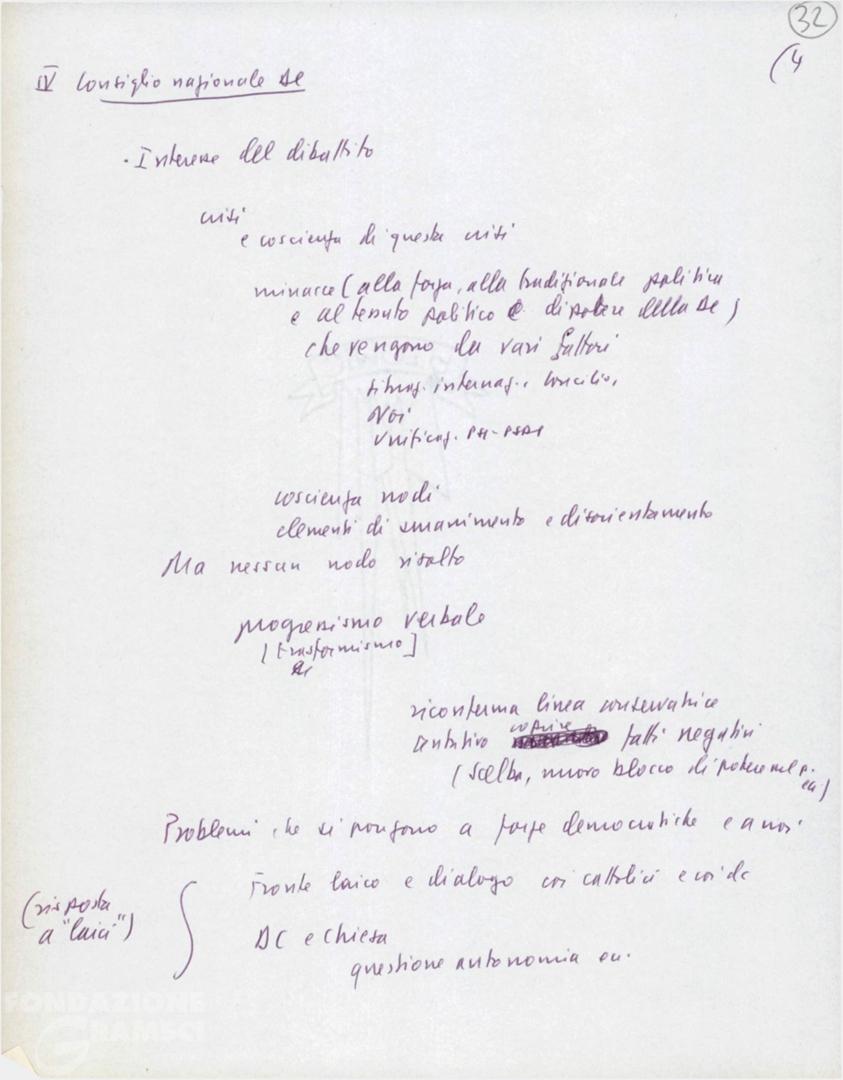 32
(4
IV Consiglio nazionale DC
· Interesse del dibattito
crisi
e coscienza di questa crisi
minacce (alla forza, alla tradizionale politica
e al tessuto politico e di potere della DC)
che vengono da vari fattori
situaz. internaz., Concilio,
Noi
Unificaz. PSI-PSDI
coscienza nodi
elementi di smarrimento e disorientamento
Ma nessun nodo risolto
progressismo verbale
[trasformismo]
riconferma linea conservatrice
coprire
tentativo fatti negativi
(Scelba, nuovo blocco di potere nel p.
Problemi che si pongono a forze democratiche e a noi
Fronte laico e dialogo coi cattolici e coi dc
(risposta
a "laici")
DC e Chiesa
questione autonomia ecc.
FONDAZIONE
GRAMSCI